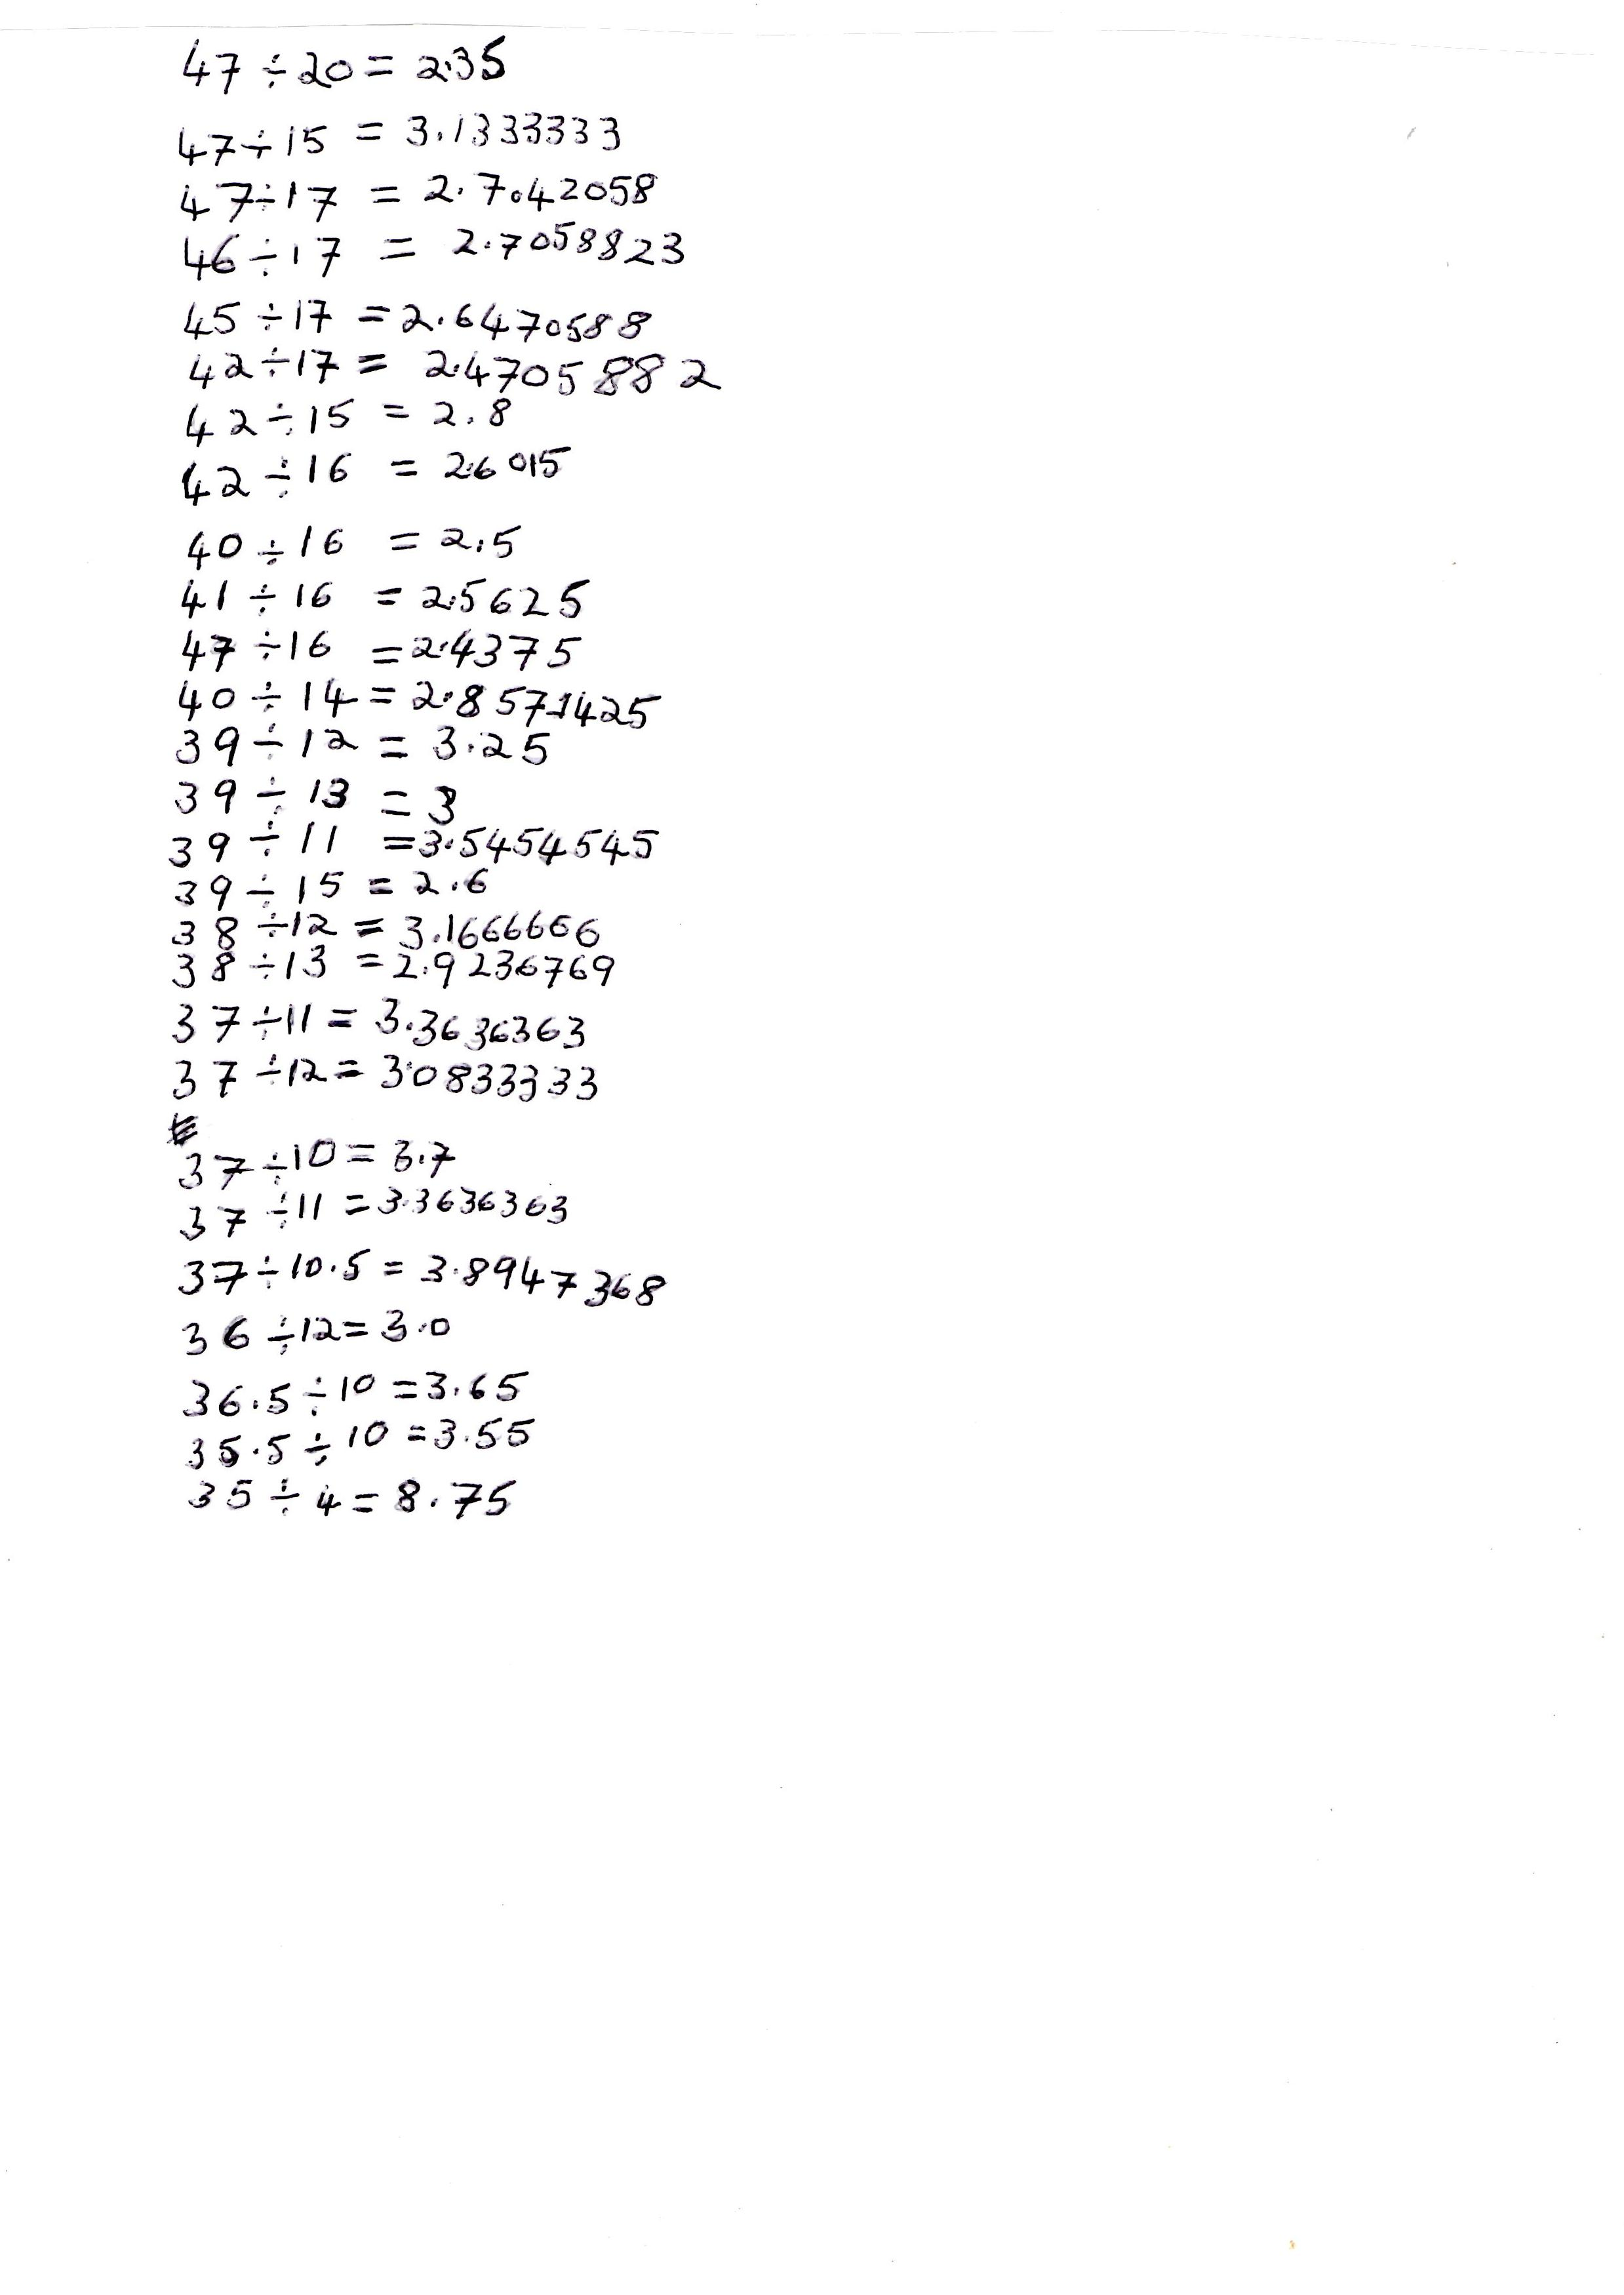 47 ÷ 20 = 2.35
47 ÷ 15 = 3.1333333
47 ÷ 17 = 2.7.42058
46 ÷ 17 = 2.7058823
45 ÷ 17 = 2.6470588
42 ÷ 17 = 2.4705882
42 ÷ 15 = 2.8
42 ÷ 16 = 2.6015
40 ÷ 16 = 2.5
41 ÷ 16 = 2.5625
47 ÷ 16 = 2.4375
40 ÷ 14 = 2.8571425
39 ÷ 12 = 3.25
39 ÷ 13 = 3
39 ÷ 11 = 3.5454545
39 ÷ 15 = 2.6
38 ÷ 12 = 3.1666666
38 ÷ 13 = 2.9236769
37 ÷ 11 = 3.3636363
37 ÷ 12 = 3.0833333
37 ÷ 10 = 3.7
37 ÷ 11 = 3.3636363
37 ÷ 10.5 = 3.8947368
36 ÷ 12 = 3.0
36.5 ÷ 10 = 3.65
35.5 ÷ 10 = 3.55
35 ÷ 4 = 8.75